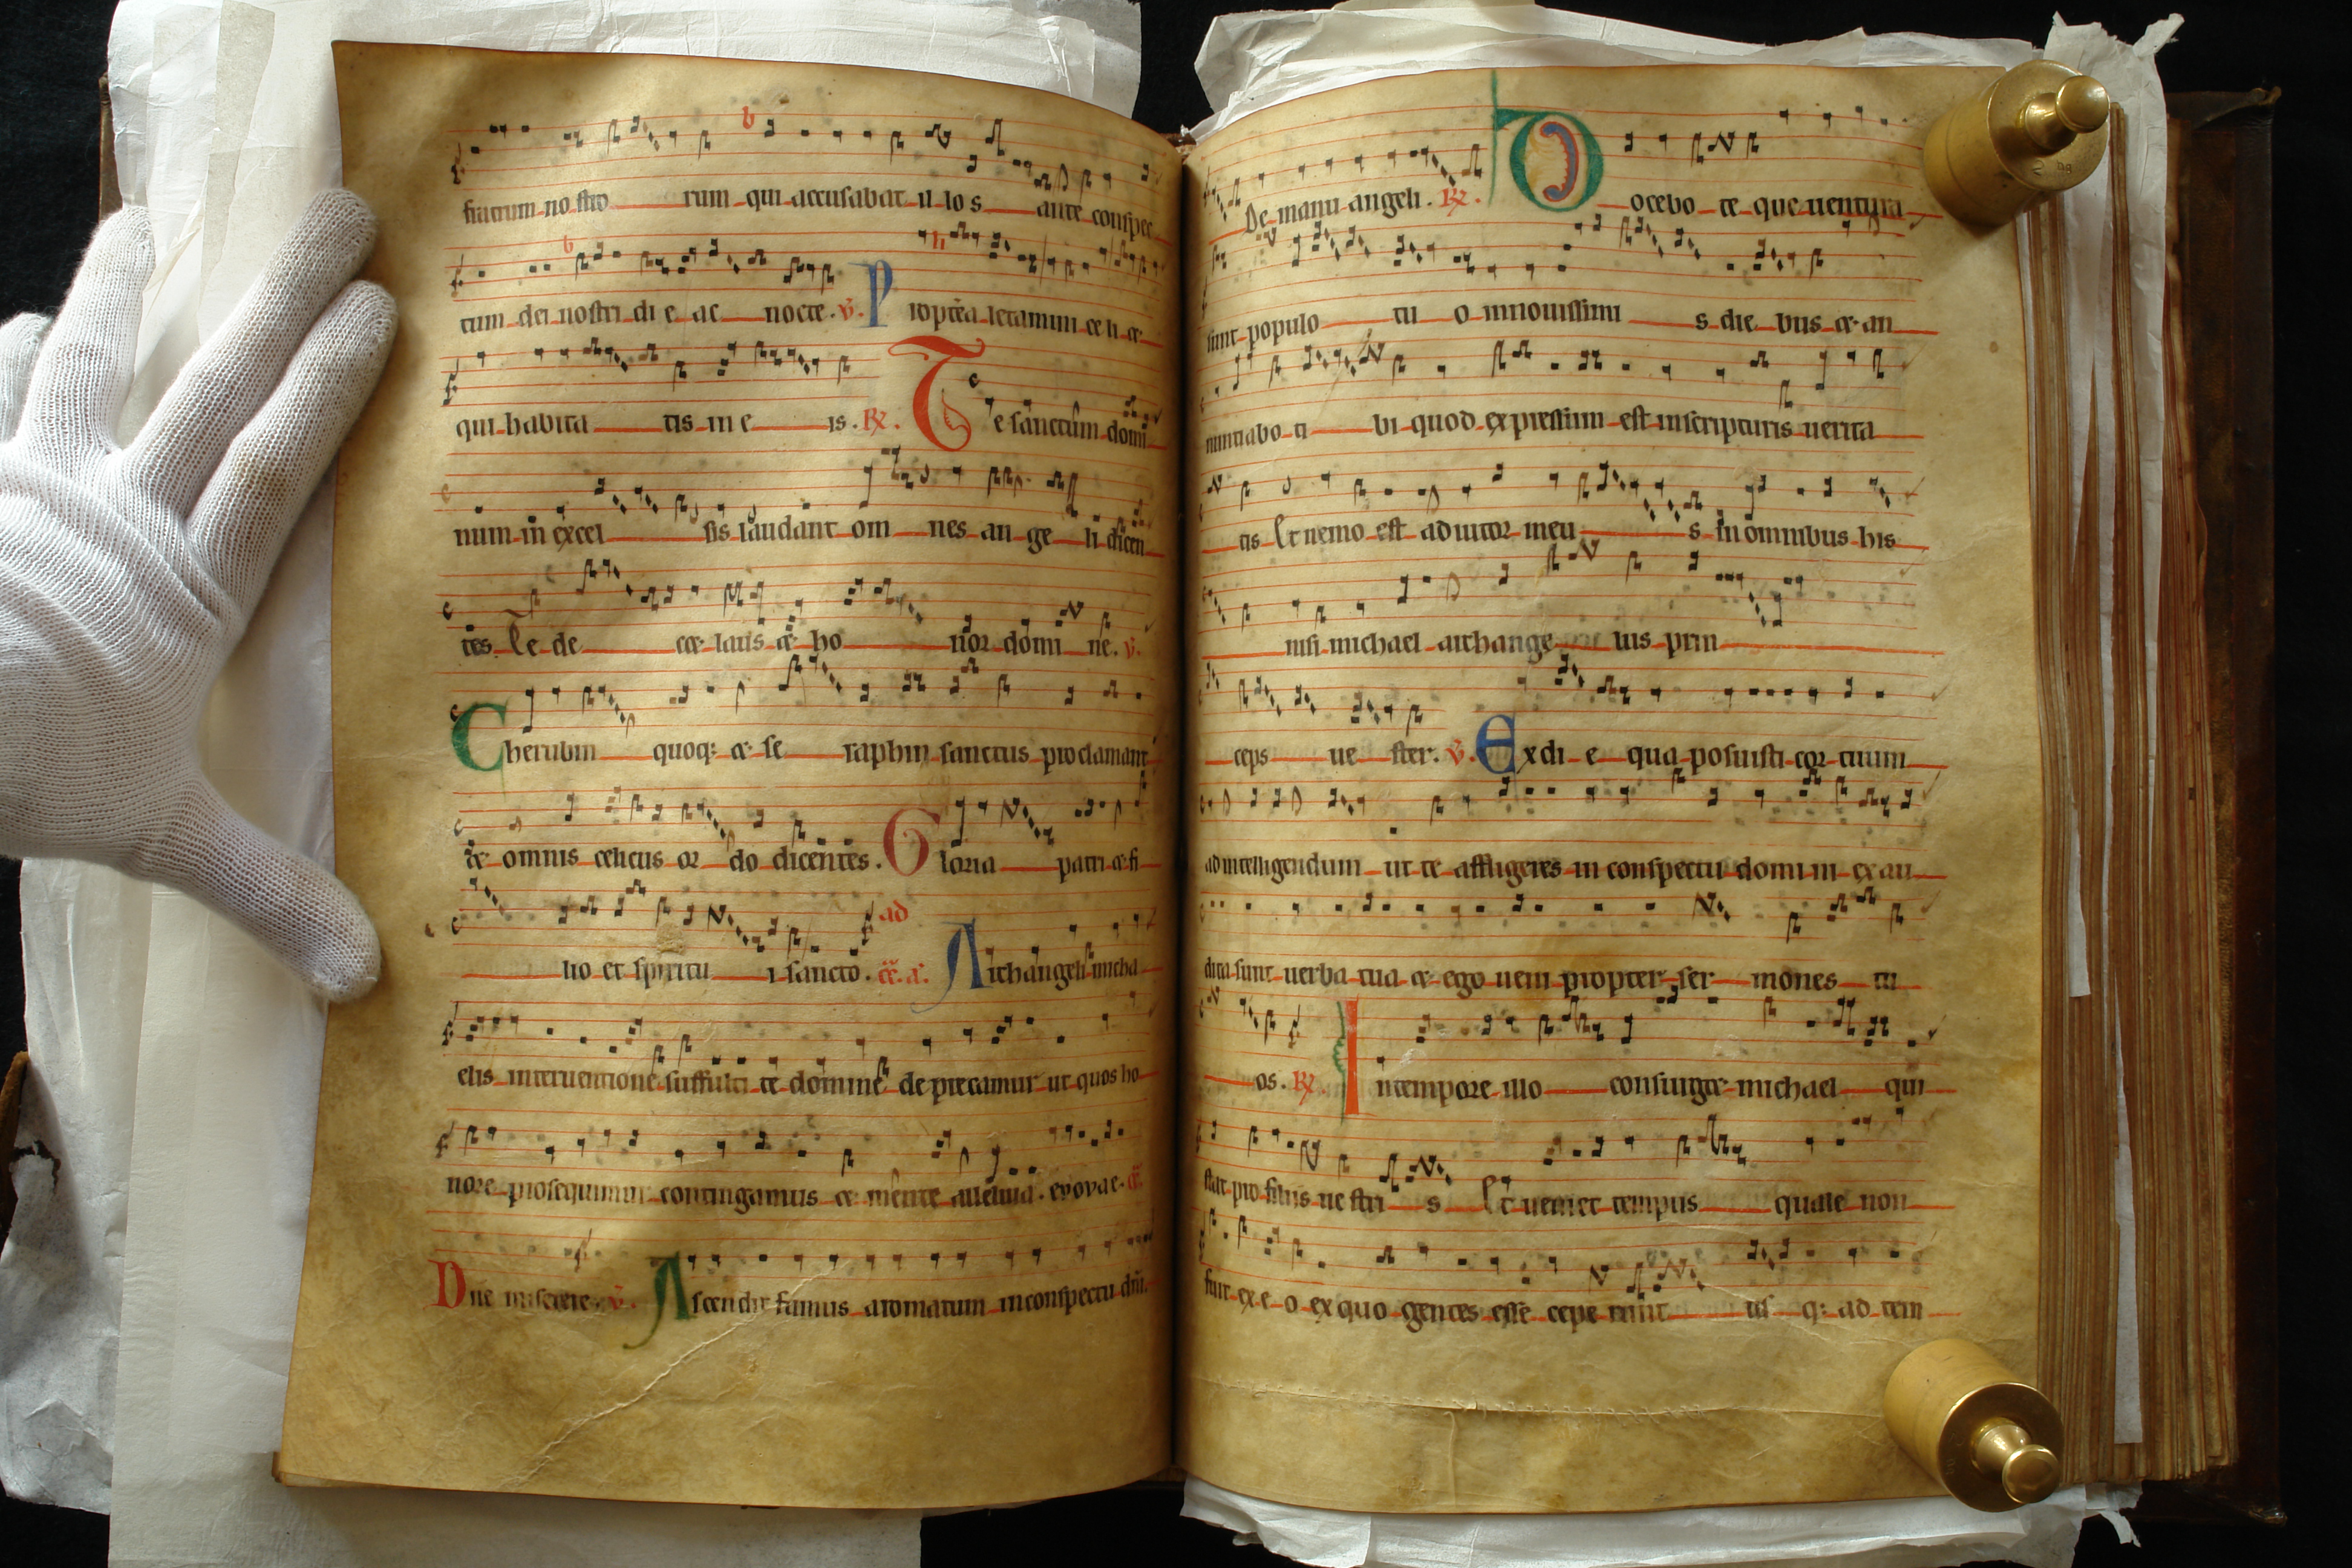 fratrum nostro rum qui accusabat il lo s ante conspec
tum dei nostri di e ac nocte. v. Propterea letamini ce li et
qui habita tis in e is. R. Te sanctum domi
num in excel sis laudant om nes an ge li dicen
tes Te de cet laus et ho nor domi ne. v.
Cherubin quoq; et se raphin sanctus proclamant
et omnis celicus or do dicentes. Gloria patri et fi
lio et spiritu i sancto. ad Archangeli micha
elis interuentione suffulti te domine de precamur ut quos ho
nore prosequimur contingamus et mente alleluia. evovae.
Dne miserere. v. Ascendit fumus aromatum in conspectu dni.
De manu angeli. R. Docebo te que uentura
sunt populo tu o in nouissimi s die bus et an
nuntiabo ti bi quod expressum est in scripturis uerita
tis Et nemo est adiutor meu s in omnibus his
nisi michael archange lus prin
ceps ue ster. v. Ex di e qua posuisti cor tuum
ad intelligendum ut te affligeres in conspectu domi ni exau
dita sunt uerba tua et ego ueni propter ser mones tu
os. R. In tempore illo consurget michael qui
stat pro filiis ue stri s Et ueniet tempus quale non
fuit ex e o ex quo gentes esse cepe runt us q; ad tem